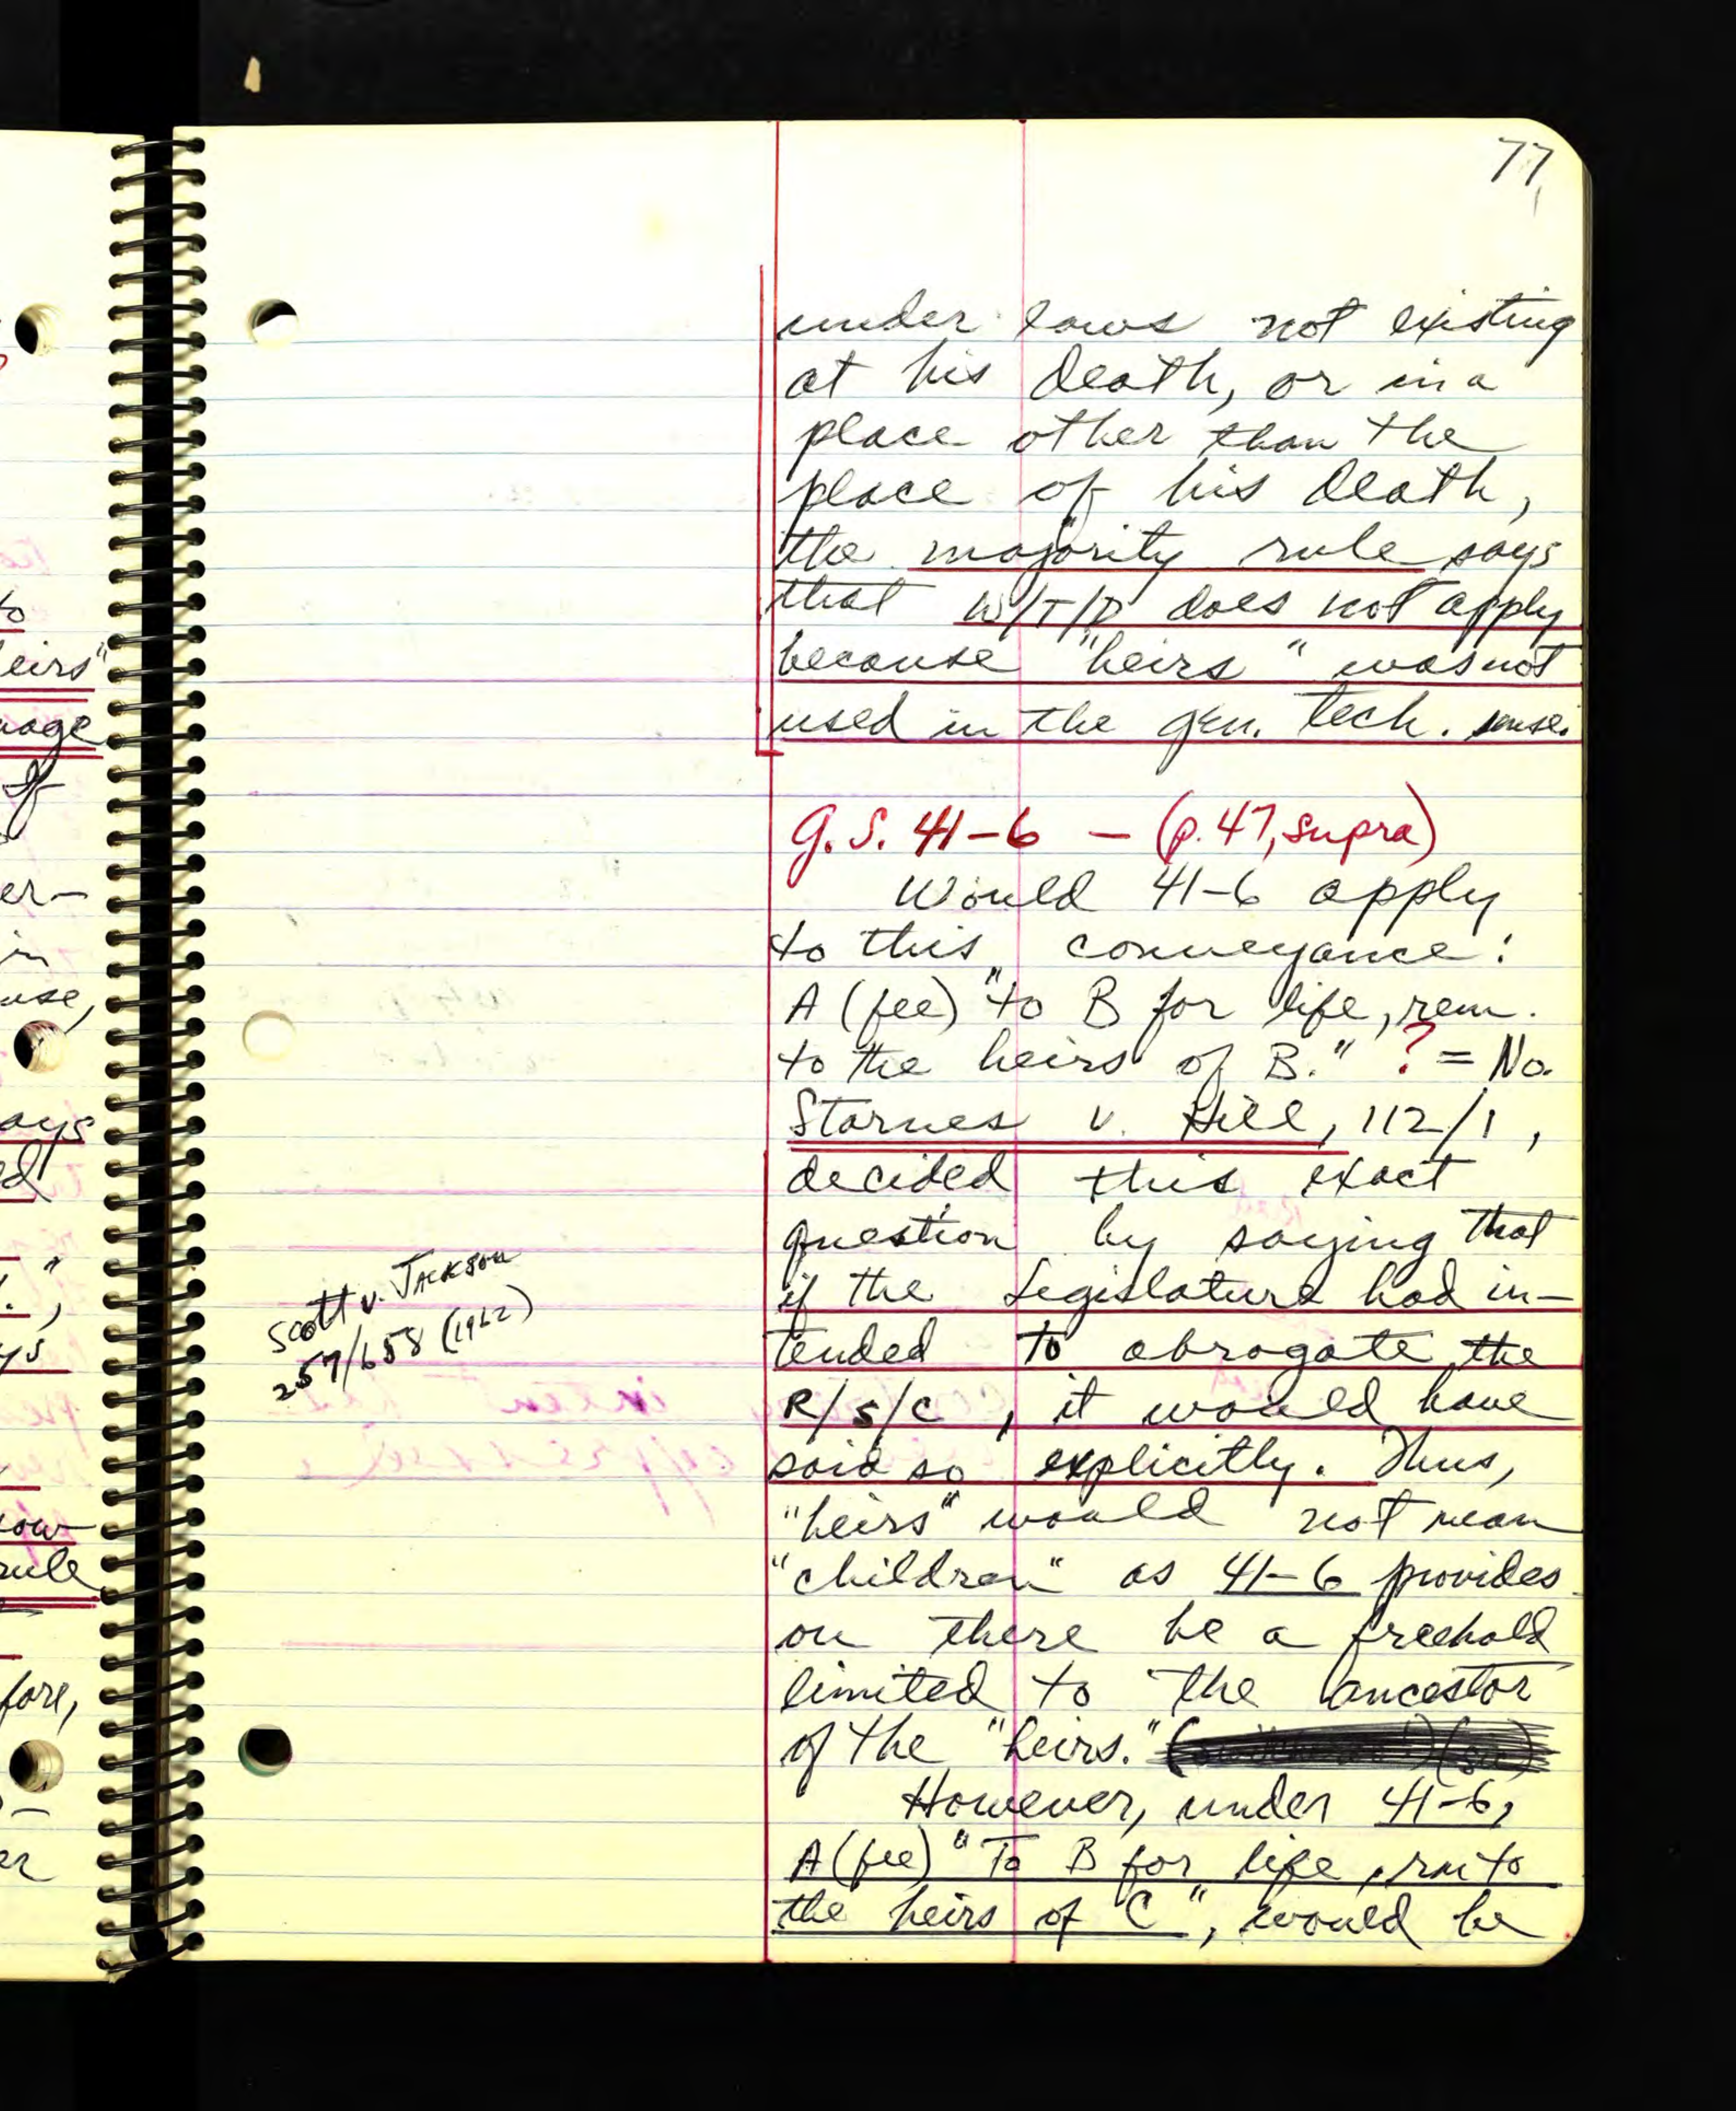 77
under laws not existing
at his death, or in a
place other than the
place of his death,
the majority rule says
that W/T/D does not apply
because "heirs" was not
used in the gen. tech. sense.
G.S. 41-6 — (p. 47, supra)
Would 41-6 apply
to this conveyance:
A (fee) "to B for life, rem.
to the heirs of B." ? = No.
Starnes v. Hill, 112/1,
decided this exact
question by saying that
if the Legislature had in-
tended to abrogate the
R/S/C, it would have
said so explicitly. Thus,
"heirs" would not mean
"children" as 41-6 provides
on there be a freehold
limited to the ancestor
of the "heirs."
However, under 41-6,
A (fee) "To B for life, rm to
the heirs of C", would be
Scott v. Jackson
257/658 (1962)
to
eirs"
uage
if
er-
in
use,
ays
ed
ys
ow
rule
fore,
er